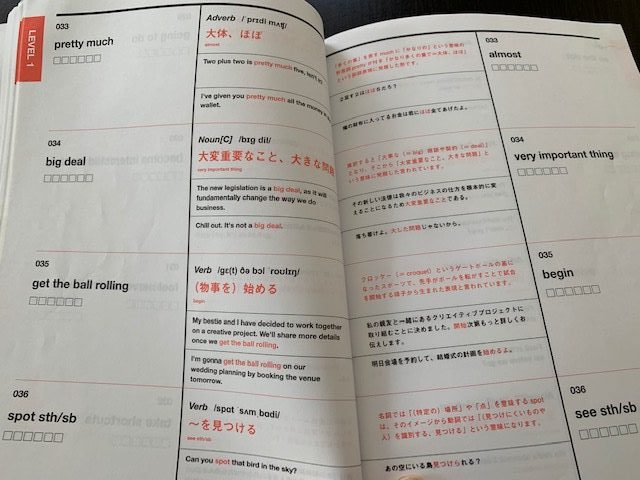 LEVEL 1
033
pretty much
Adverb /ˈprɪdi mʌtʃ/
大体、ほぼ
almost
Two plus two is pretty much five, isn't it?
I've given you pretty much all the money in
wallet.
034
big deal
Noun[C] /bɪg dil/
大変重要なこと、大きな問題
very important thing
The new legislation is a big deal, as it will
fundamentally change the way we do
business.
Chill out. It's not a big deal.
035
get the ball rolling
Verb /gɛ(t) ðə bɔl ˈroʊlɪŋ/
(物事を) 始める
begin
My bestie and I have decided to work together
on a creative project. We'll share more details
once we get the ball rolling.
I'm gonna get the ball rolling on our
wedding planning by booking the venue
tomorrow.
036
spot sth/sb
Verb /spɑt ˈsʌmˌbɑdi/
〜を見つける
see sth/sb
Can you spot that bird in the sky?
033
almost
2足す2はほぼ5だろう?
俺の財布に入ってるお金は君にほぼ全てあげたよ。
034
very important thing
直訳すると「大事な (= big) 商談や契約 (= deal)」
となり、そこから「大変重要なこと、大きな問題」と
いう意味に発展したと言われています。
その新しい法律は我々のビジネスの仕方を根本的に変
えることになるため大変重要なことである。
落ち着けよ。大した問題じゃないから。
035
begin
クロッケー (= croquet) というゲートボールの基に
なったスポーツで、先手がボールを転がすことで試合
を開始する様子から生まれた表現と言われています。
私の親友と一緒にあるクリエイティブプロジェクトに
取り組むことに決めました。開始次第もっと詳しくお
伝えします。
明日会場を予約して、結婚式の計画を始めるよ。
036
see sth/sb
名詞では「(特定の) 場所」や「点」を意味する spot
は、そのイメージから動詞では「(見つけにくいものや
人) を識別する、見つける」という意味になります。
あの空にいる鳥見つけられる?